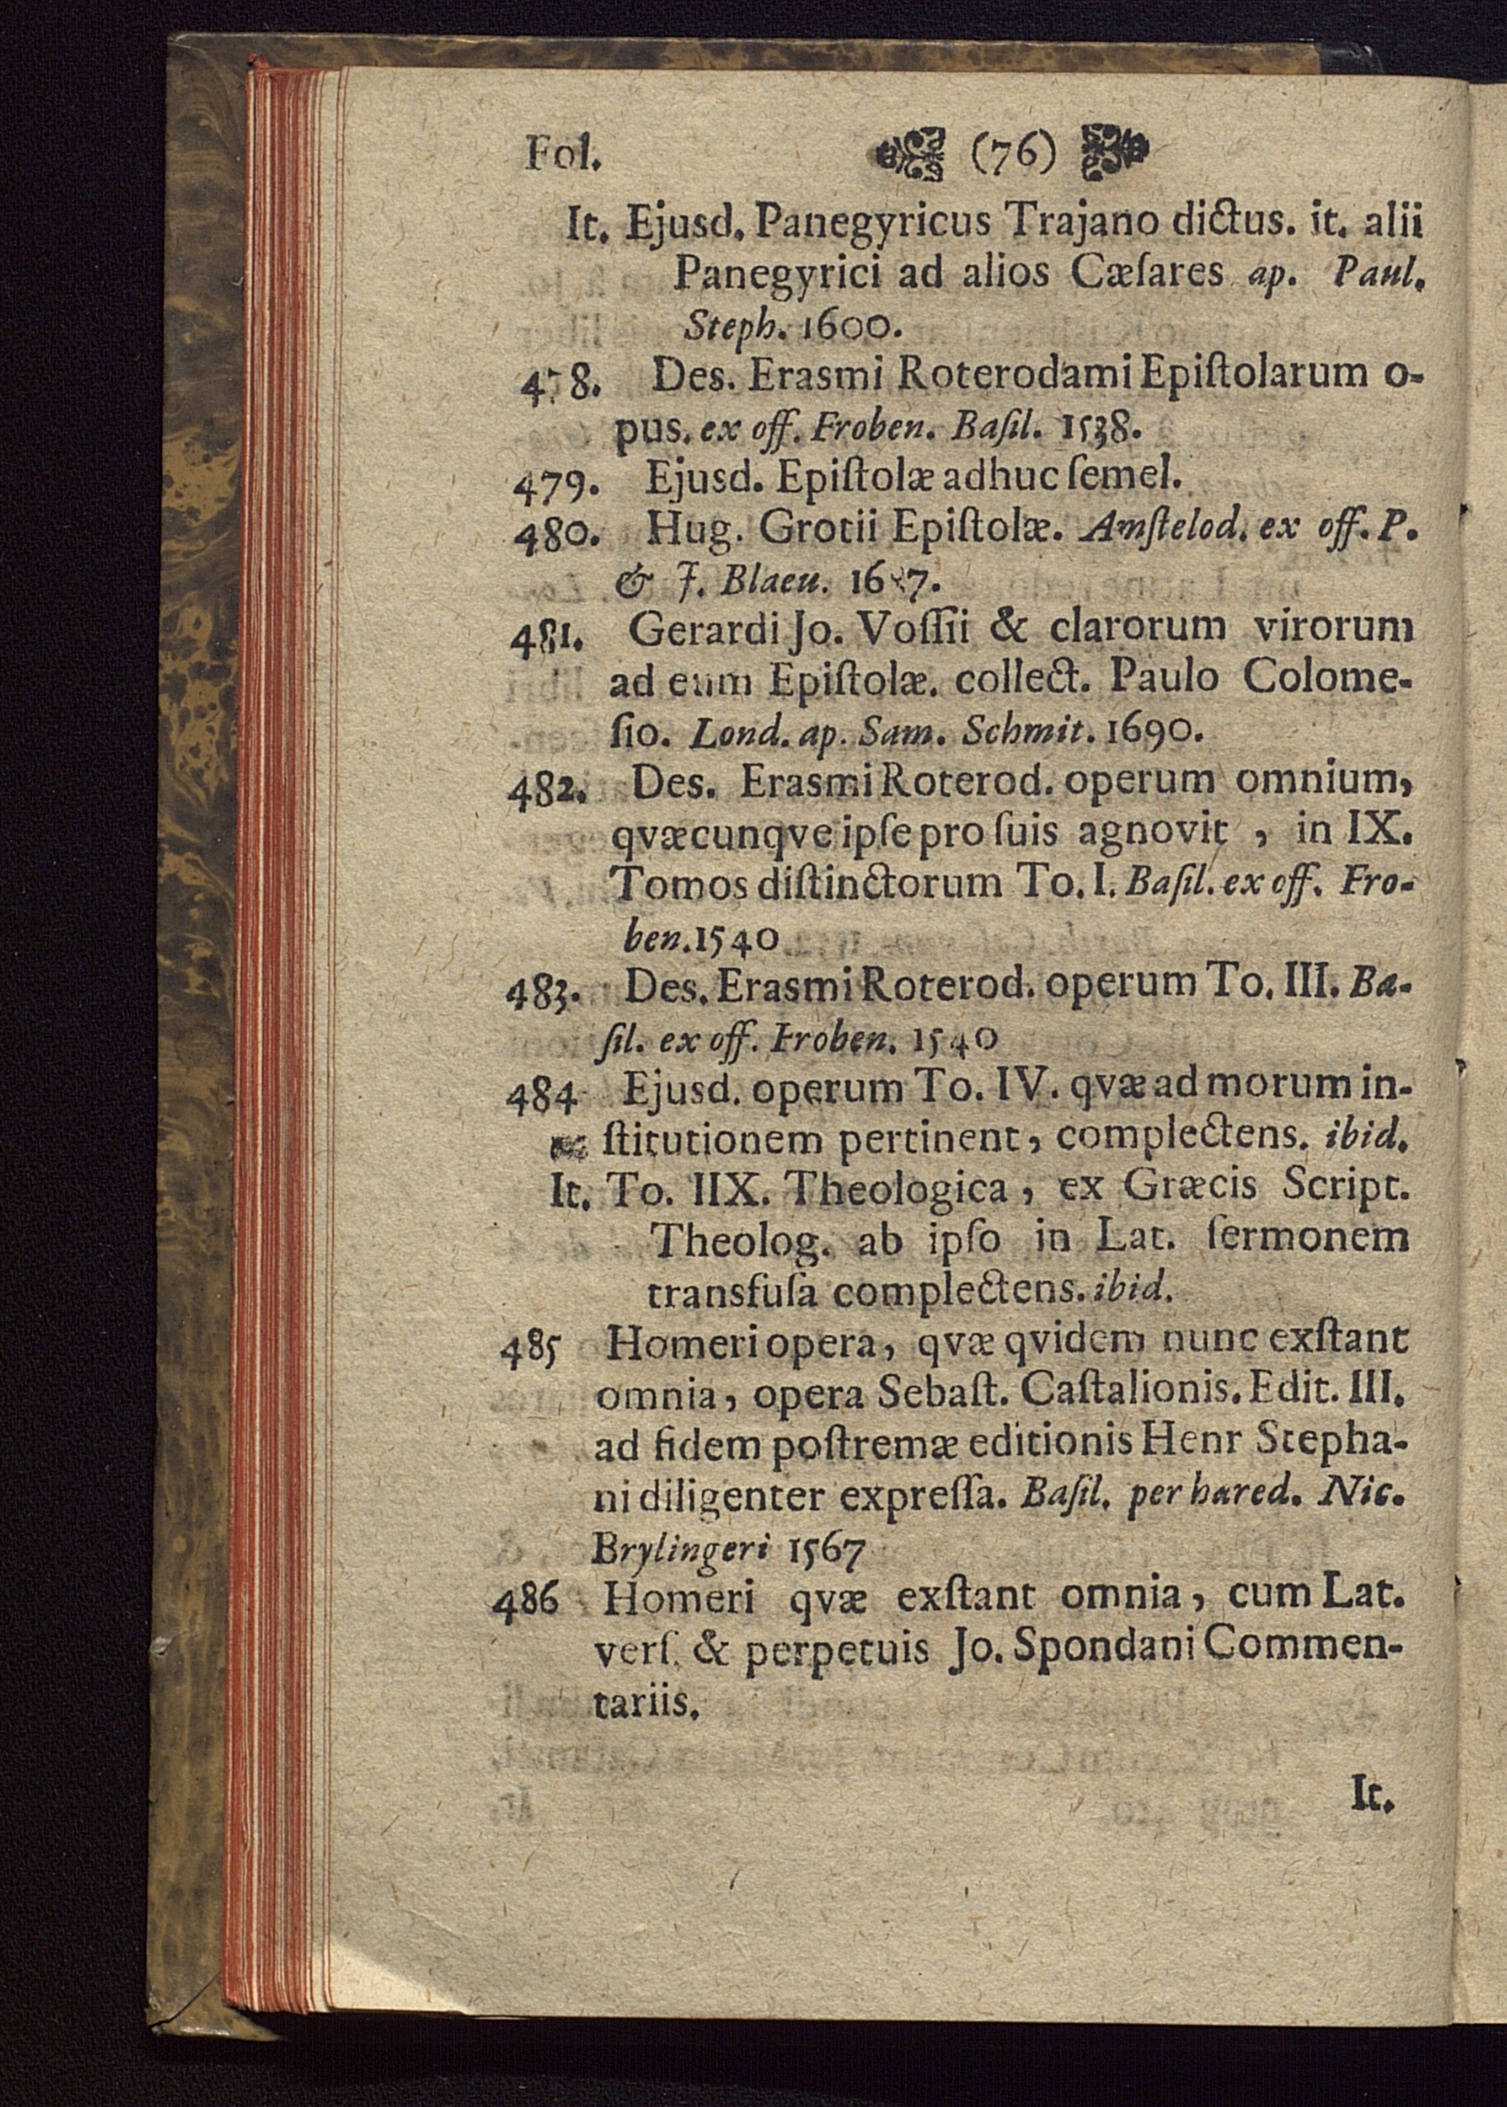 Fol. (76)
It. Ejusd. Panegyricus Trajano dictus. it. alii
Panegyrici ad alios Cæſares ap. Paul.
Steph. 1600.
478. Des. Erasmi Roterodami Epiſtolarum o-
pus. ex off. Froben. Baſil. 1538.
479. Ejusd. Epiſtolæ adhuc ſemel.
480. Hug. Grotii Epiſtolæ. Amſtelod. ex off. P.
& J. Blaeu.
481. Gerardi Jo. Voſſii & clarorum virorum
ad eum Epiſtolæ. collect. Paulo Colome-
ſio. Lond. ap. Sam. Schmit. 1690.
482. Des. Erasmi Roterod. operum omnium,
qvæcunqve ipſe pro ſuis agnovit, in IX.
Tomos diſtinctorum To. I. Baſil. ex off. Fro-
ben. 1540
483. Des. Erasmi Roterod. operum To. III. Ba-
ſil. ex off. Froben. 1540
484 Ejusd. operum To. IV. qvæ ad morum in-
ſtitutionem pertinent, complectens. ibid.
It. To. IIX. Theologica, ex Græcis Script.
Theolog. ab ipſo in Lat. ſermonem
transfuſa complectens. ibid.
485 Homeri opera, qvæ qvidem nunc exſtant
omnia, opera Sebaſt. Caſtalionis. Edit. III.
ad fidem poſtremæ editionis Henr Stepha-
ni diligenter expreſſa. Baſil. per hæred. Nic.
Brylingeri 1567
486 Homeri qvæ exſtant omnia, cum Lat.
verſ. & perpetuis Jo. Spondani Commen-
tariis.
It.